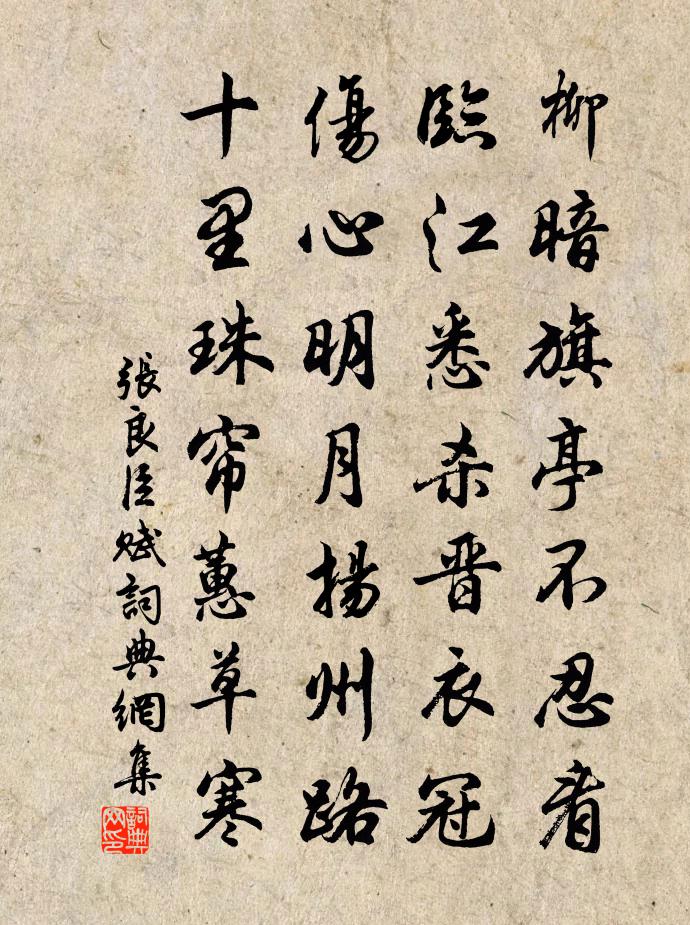 柳暗旗亭不忍看
臨江悉杀晋衣冠
傷心明月揚州路
十里珠帘蕙草寒
張良臣賦詞典網集
詞典網印